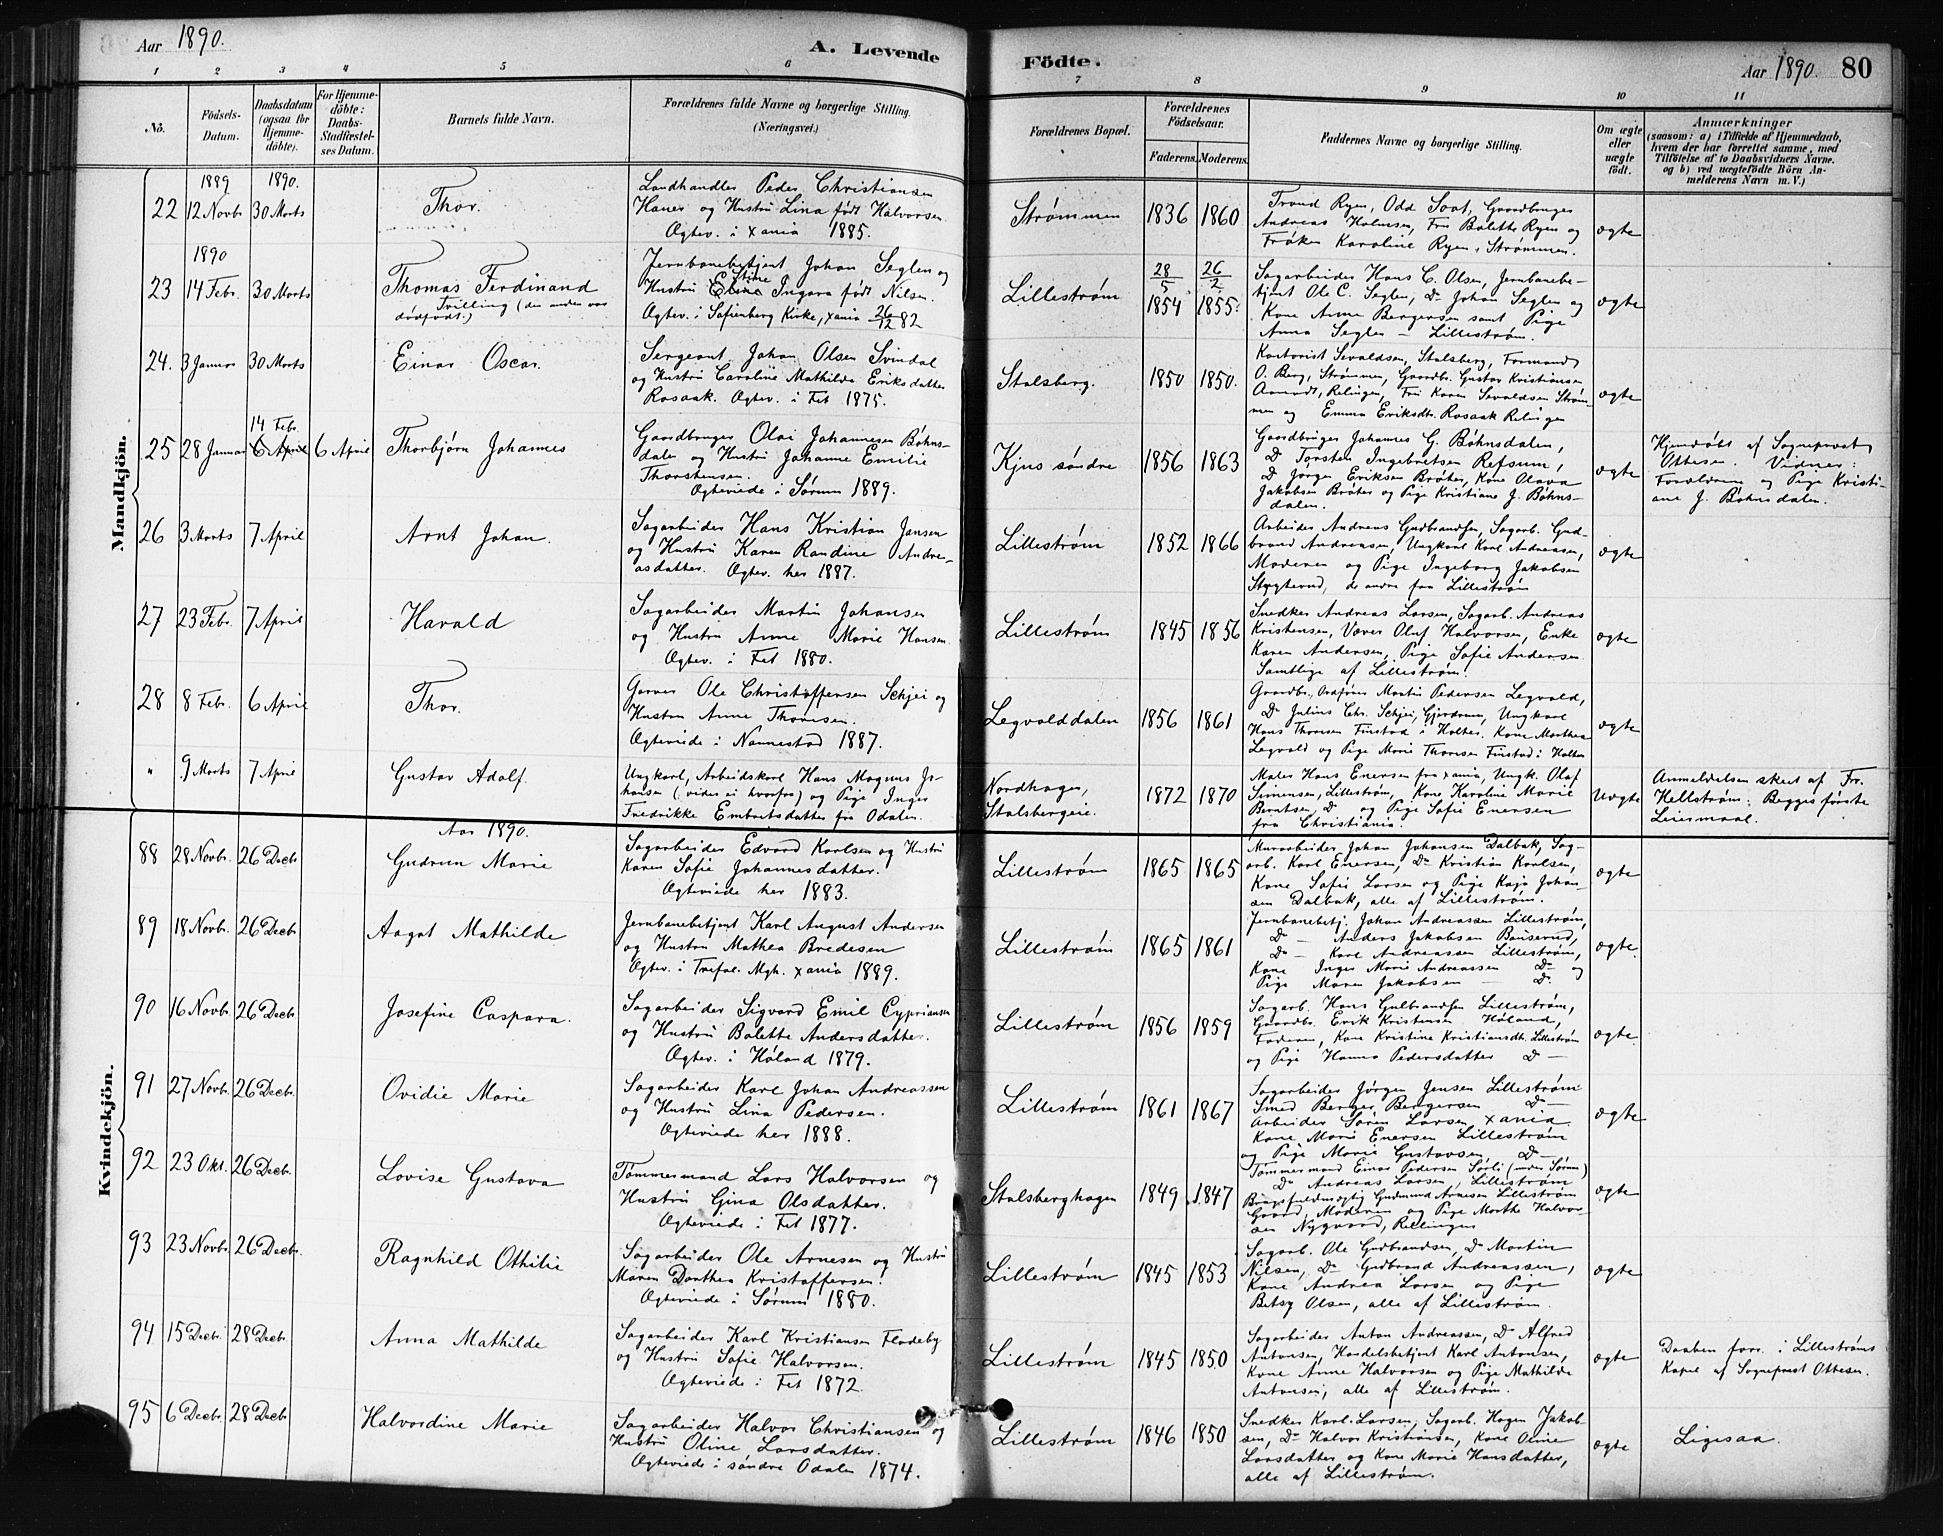 Aar 1890. A. Levende
Födte. Aar 1890. 80
1 2 3 4 5 6 7 8 9 10 11
Nö.
Födsels-
Datum.
Daabsdatum
(ogsaa for
Hjemme-
döbte).
For Hjemme-
döbte:
Daabs-
Stadfæstel-
ses Datum.
Barnets fulde Navn.
Forældrenes fulde Navne og borgerlige Stilling.
(Næringsvei.)
Forældrenes Bopæl.
Forældrenes
Födselsaar.
Faderens. Moderens.
Faddernes Navne og borgerlige Stilling.
Om ægte
eller
uægte
födt.
Anmærkninger
(saasom: a) i Tilfælde af Hjemmedaab,
hvem der har forrettet samme, med
Tilföielse af to Daabsvidners Navne.
og b) ved uægtefödte Börn An-
melderens Navn m. V.)
Mandkjön.
1889 1890.
22 12 Novbr 30 Marts
Thor.
Landhandler Peder Christiansen
Haner og Hustru Lina født Halvorsen.
Ægtev. i Xania 1885.
Strømmen
1836 1860
Trond Ryen, Odd Soot, Gaardbruger
Andreas Holmsen, Fru Bolette Ryen og
Frøken Karoline Ryen, Strømmen.
ægte
1890
23 14 Febr. 30 Marts
Thomas Ferdinand
Tvilling (den anden var
dødfødt.)
Jernbanebetjent Johan Seglen og
Hustru Eline Stine Ingara født Nilsen.
Ægtev. i Sofienberg Kirke, Xania 26/12 82
Lillestrøm
28/5 1854 26/2 1855.
Sagarbeider Hans C. Olsen, Jernbanebe-
tjent Ole C. Seglen, Do Johan Seglen og
Kone Anne Bergersen samt Pige
Anna Seglen – Lillestrøm.
ægte
24. 3 Januar 30 Marts
Einar Oscar.
Sergeant Johan Olsen Svindal
og Hustru Caroline Mathilde Eriksdatter
Rosaak. Ægtev. i Fet 1875.
Stalsberg.
1850 1850.
Kontorist Sevaldsen, Stalsberg, Formand
O. Berg, Strømmen, Gaardbr. Gustav Kristiansen
Aamodt, Relingen, Fru Karen Sevaldsen Strøm-
men og Emma Eriksdtr. Rosaak Relingen
ægte
25 28 Januar 14 Febr. 6 April 6 April
Thorbjørn Johannes
Gaardbruger Olai Johannesen Bøhns-
dalen og Hustru Johanne Emilie
Thorstensen.
Ægteviede i Sørum 1889.
Kjus søndre
1856 1863
Gaardbruger Johannes G. Bøhnsdalen,
Do Torsten Ingebretsen Refsum,
Do Jørgen Eriksen Brøter, Kone Olava
Jakobsen Brøter og Pige Kristiane J. Bøhns-
dalen.
ægte
Hjemdøbt af Sogneprest
Ottesen. Vidner:
Forældrene og Pige Kristi-
ane J. Bøhnsdalen.
26 3 Marts 7 April
Arnt Johan.
Sagarbeider Hans Kristian Jensen
og Hustru Karen Randine Andre-
asdatter. Ægtev. her 1887.
Lillestrøm
1852 1866
Arbeider Andreas Gudbrandsen, Sagarb. Gud-
brand Andreasen, Ungkarl Karl Andreasen,
Moderen og Pige Ingeborg Jakobsen
Stygterud, de andre fra Lillestrøm
ægte
27 23 Febr. 7 April
Harald
Sagarbeider Martin Johansen
og Hustru Anne Marie Hansen.
Ægtev. i Fet 1880.
Lillestrøm
1845 1856
Snedker Andreas Larsen, Sagarb. Andreas
Kristensen, Væver Oluf Halvorsen, Enke
Karen Andersen, Pige Sofie Andersen
Samtlige af Lillestrøm.
ægte
28 8 Febr. 6 April
Thor.
Garver Ole Christoffersen Schjei og
Hustru Anne Thomsen.
Ægteviede i Nannestad 1887.
Legvolddalen
1856 1861
Gaardbr., Ordfører Martin Pedersen Legvold,
Do Julius Chr. Schjei, Gjerdrum, Ungkarl
Hans Thomsen Finstad i Holter, Kone Marthea
Legvold og Pige Marie Thomsen Finstad i Holter
ægte
" 9 Marts 7 April
Gustav Adolf.
Ungkarl, Arbeidskarl Hans Magnus Jo-
hansen (vides ei hvorfra) og Pige Inger
Fredrikke Embretsdatter fra Odalen.
Nordhagen,
Stalsbergeie.
1872 1870
Maler Hans Enersen fra Xania, Ungk. Olaf
Simensen, Lillestrøm, Kone Karoline Marie
Berntsen, Do og Pige Sofie Enersen
fra Christiania.
Uægte
Anmeldelsen skeet af Fr.
Hellstrøm. Begges første
Leiermaal.
Kvindekjön.
Aar 1890.
88 28 Novbr. 26 Decbr
Gudrun Marie
Sagarbeider Edvard Karlsen og Hustru
Karen Sofie Johannesdatter.
Ægteviede her 1883.
Lillestrøm
1865 1865
Murarbeider Johan Johansen Dalbak, Sag-
arb. Karl Enersen, Do Kristian Karlsen,
Kone Sofie Larsen og Pige Kaja Johan-
sen Dalbak, alle af Lillestrøm.
ægte
89 18 Novbr. 26 Decbr.
Aagot Mathilde
Jernbanebetjent Karl August Andersen
og Hustru Mathea Bredesen
Ægtev. i Trefol. Mgh. Xania 1889.
Lillestrøm
1865 1861
Jernbanebetj. Johan Andreassen Lillestrøm,
Do – Anders Jakobsen Bauserud,
Do – Karl Andreassen Lillestrøm,
Kone Inger Marie Andreassen Do og
Pige Maren Jakobsen – Do.
ægte.
90 16 Novbr. 26 Decbr.
Josefine Caspara.
Sagarbeider Sigvard Emil Cypriansen
og Hustru Bolette Andersdatter.
Ægtev. i Høland 1879.
Lillestrøm
1856 1859
Sagarb. Hans Gulbrandsen Lillestrøm,
Gaardbr. Erik Kristensen Høland,
Faderen, Kone Kristine Kristiansdt. Lillestrøm
og Pige Hanna Pedersdatter Do –
ægte.
91 27 Novbr. 26 Decbr.
Ovidie Marie
Sagarbeider Karl Johan Andreassen
og Hustru Lina Pedersen.
Ægteviede her 1888.
Lillestrøm
1861 1867
Sagarbeider Jørgen Jensen Lillestrøm
Smed Berger Bergersen Do –
Arbeider Søren Larsen Xania
Kone Marie Enersen Lillestrøm
og Pige Marie Gustavsen Do –
ægte
92 23 Okt. 26 Decbr.
Lovise Gustava
Tømmermand Lars Halvorsen og
Hustru Gina Olsdatter.
Ægteviede i Fet 1877.
Stalsberghagen
1849 1847
Tømmermand Einar Pedersen Sørli (nedre Sørum)
Do Andreas Larsen, Lillestrøm
Gudmund Arnesen Lillestrøm
Gaard, Moderen og Pige Marthe Halvor-
sen Nygaard, Rellingen
ægte
93 23 Novbr 26 Decbr.
Ragnhild Othilie
Sagarbeider Ole Arnesen og Hustru
Maren Dorthea Kristoffersen.
Ægteviede i Sørum 1880.
Lillestrøm
1845 1853
Sagarb. Ole Gudbrandsen, Do Martin
Nilsen, Do Gudbrand Andreassen,
Kone Andrea Larsen og Pige
Betsy Olsen, alle af Lillestrøm.
ægte
94 15 Decbr. 28 Decbr.
Anna Mathilde
Sagarbeider Karl Kristiansen Flodeby
og Hustru Sofie Halvorsen.
Ægteviede i Fet 1872.
Lillestrøm
1845 1850
Sagarbeider Anton Andreassen, Do Alfred
Antonsen, Handelsbetjent Karl Antonsen,
Kone Anne Halvorsen og Pige Mathilde
Antonsen, alle af Lillestrøm.
ægte
Daaben forr. i Lillestrøms
Kapel af Sogneprest Ottesen.
95 6 Decbr. 28 Decbr
Halvordine Marie
Sagarbeider Halvor Christiansen og
Hustru Oline Larsdatter.
Ægteviede i søndre Odalen 1874.
Lillestrøm
1846 1850
Snedker Karl Larsen, Sagarb. Hagen Jakob-
sen, Do Halvor Kristiansen, Kone Oline
Larsdatter og Kone Marie Hansdatter,
alle af Lillestrøm.
ægte
Ligesaa.